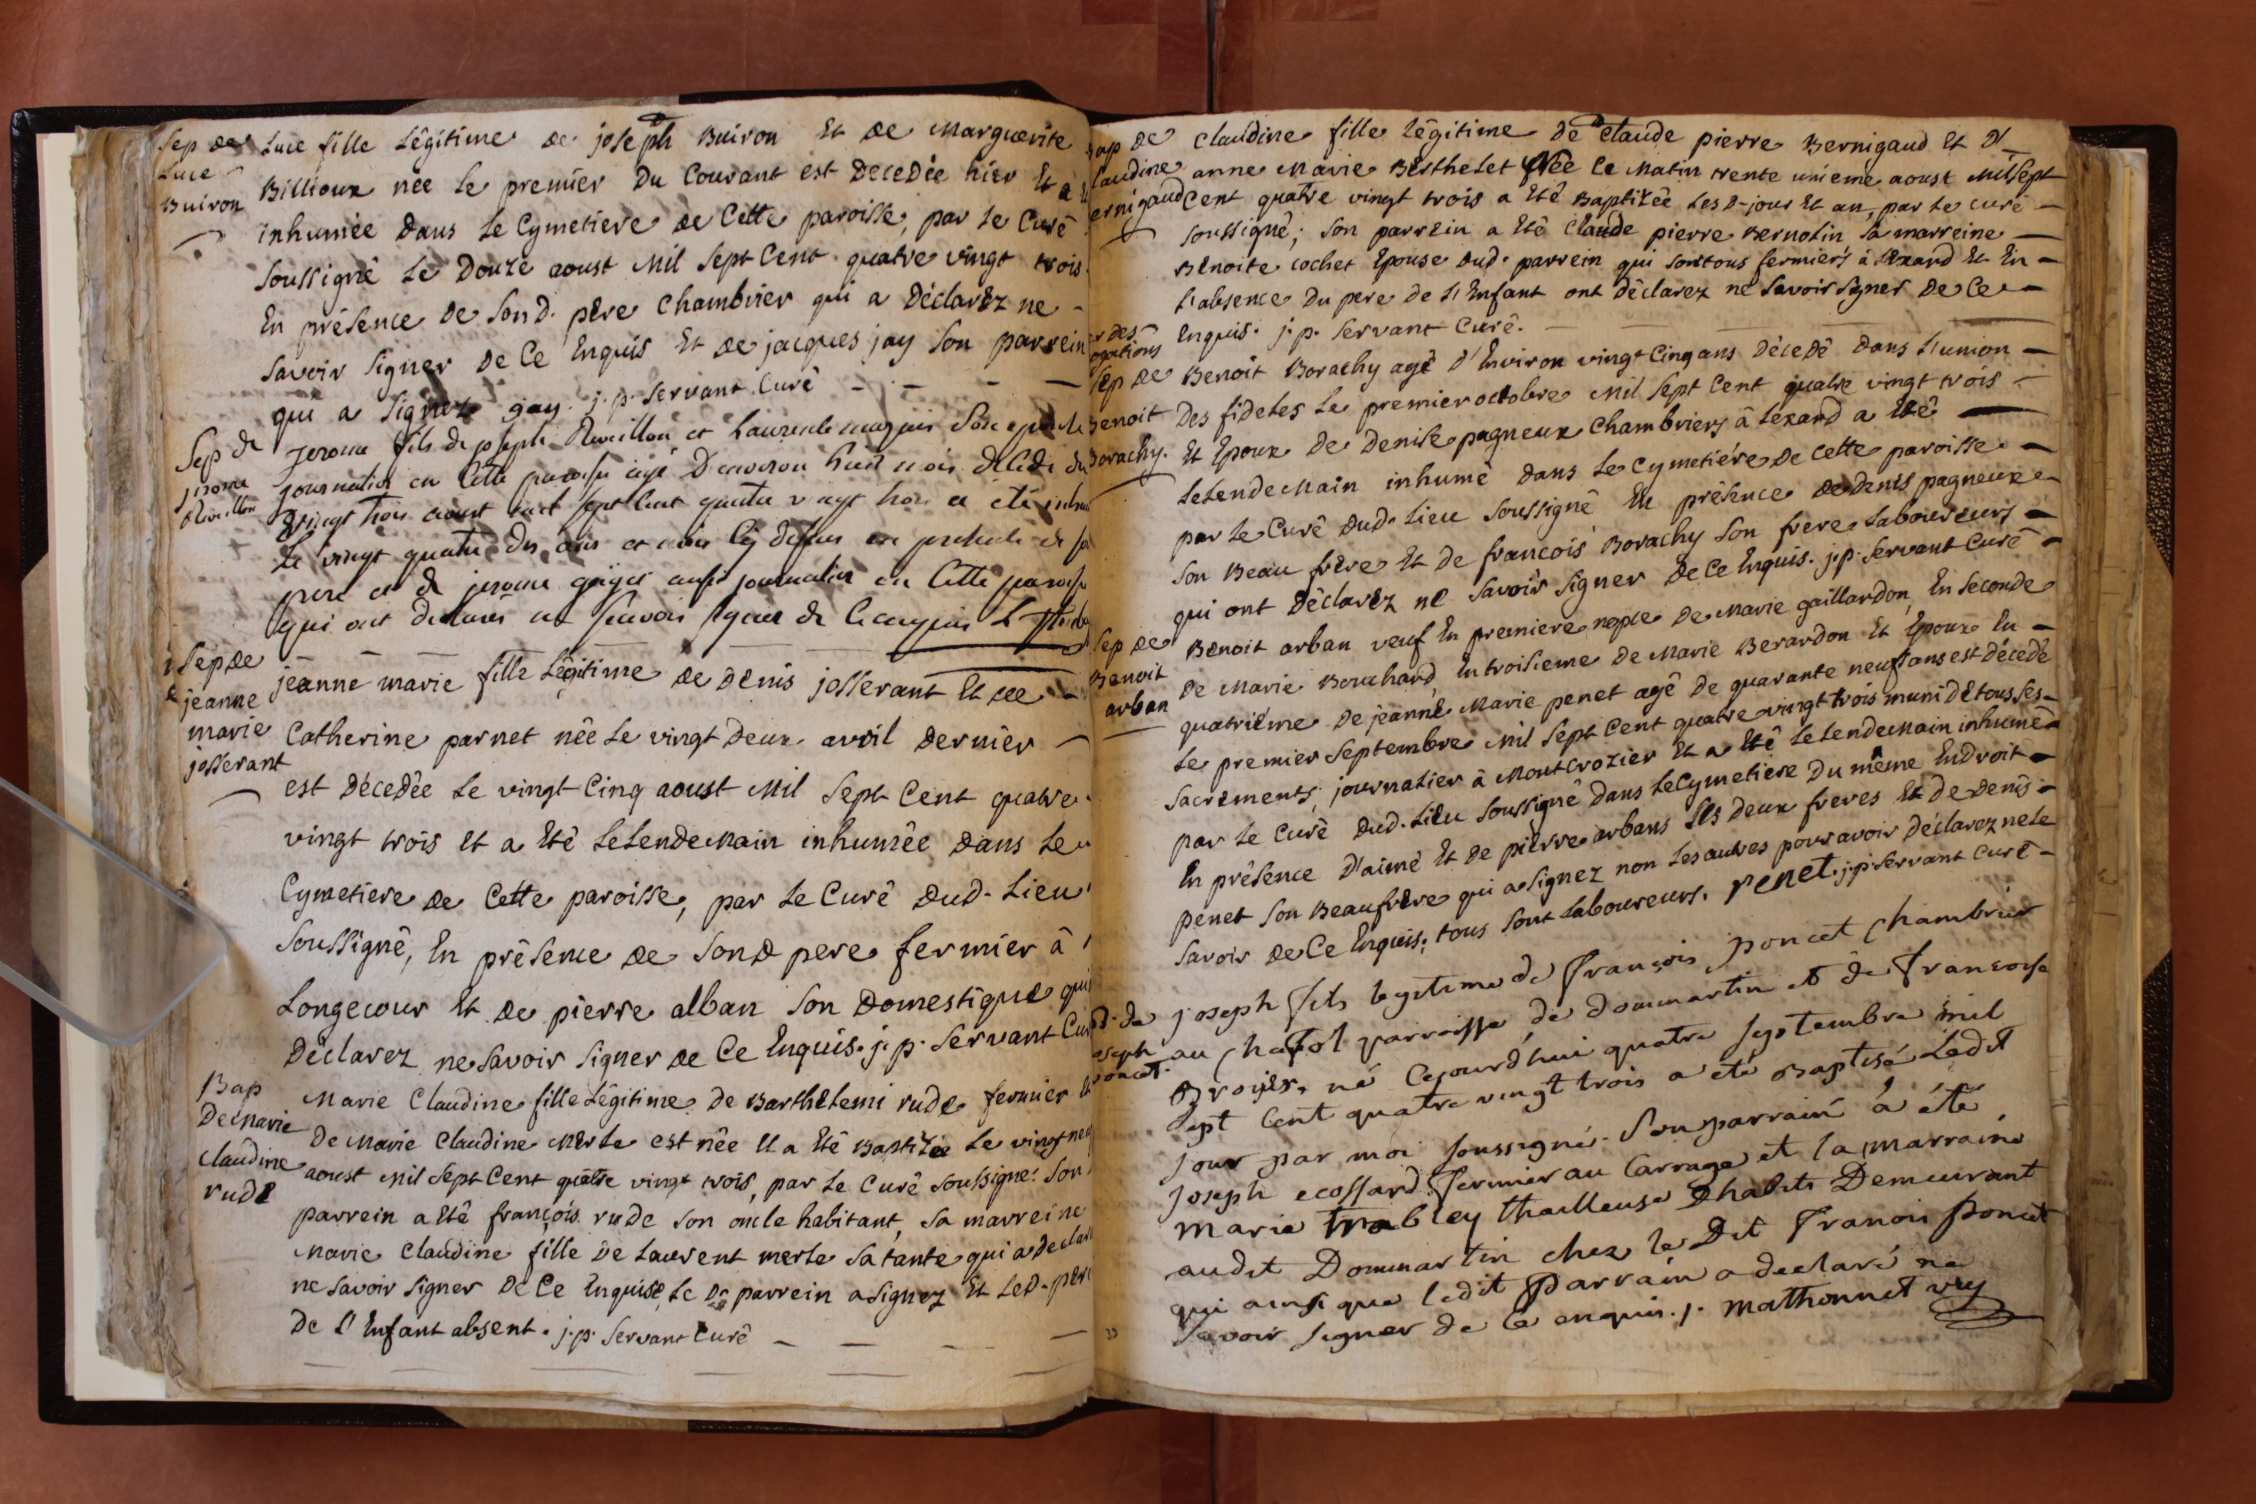 Sep de
Luce
Buiron
Luce fille Légitime de joseph Buiron Et de Marguerite
Billioux née le premier Du Courant est Decedée hier Et a
inhumée dans le Cymetiere de Cette paroisse, par le Curé
Soussigné le Douze aoust Mil Sept Cent quatre vingt trois
En présence de Son d. père Chambrier qui a Déclarez ne
savoir signer de Ce Enquis Et de jacques jay Son parrein
qui a Signez jay. j. p. Servant Curé
Sep de
jerome
Revillon
jerome fils de joseph Revillon et Laurence
journalier en Cette paroisse agé D'environ huit mois décédé
vingt trois aoust mil sept Cent quatre vingt trois a été
Le vingt quatre des ans et mois Cy dessus en présence de
pere et de jerome aussi journalier en Cette paroisse
qui ont declarés ne sçavoir signer de Ce enquis
Sep de
jeanne
marie
josserant
jeanne marie fille Légitime de denis josserant Et de
Catherine parnet née Le vingt Deux avril Dernier
est Décedée Le vingt Cinq aoust Mil Sept Cent quatre
vingt trois et a Eté LeLendemain inhumée dans Le
Cymetiere de Cette paroisse, par Le Curé dud. Lieu
Soussigné, En présence de Son d pere fermier à
Longecour Et de pierre alban Son Domestique qui
Déclarez ne Savoir signer de Ce Enquis. j. p. Servant Cur
Bap
De Marie
claudine
rude
Marie Claudine fille Légitime de Barthelemi rude fermier
De Marie Claudine Merle est née Et a Eté Baptizée Le vingt neu
aoust Mil Sept Cent quatre vingt trois, par Le Curé Soussigné. Son
parrein a Eté françois rude son oncle habitant, Sa marreine
Marie Claudine fille De Laurent merle sa tante qui a declar
ne Savoir signer De Ce Enquise, Le D. parrein a Signez Et Led. pere
De L'Enfant absent. j. p. Servant Curé
Bap de
Claudine
Bernigaud
Claudine fille légitime de Claude pierre Bernigaud Et d'
anne Marie Berthelet Née Ce Matin trente unieme aoust Mil Sept
Cent quatre vingt trois a Eté Baptizée Les d. jour Et an, par Le curé
Soussigné; Son parrein a Eté Claude pierre Bernolin Sa marreine
Benoite cochet Epouse dud. parrein qui sont tous fermiers à Lezard Et En
L'absence Du pere de L'Enfant ont déclarez ne Savoir signer De Ce
Enquis. j. p. Servant Curé.
Sep de
Benoit
Borachy.
Benoit Borachy agé d'Environ vingt Cinq ans Décedé dans L'union
Des fideles Le premier octobre Mil Sept Cent quatre vingt trois
Et Epoux De Denise pagneux Chambriers à Lezard a Eté
LeLendemain inhumé dans Le Cymetiére de Cette paroisse
par Le Curé dud. Lieu Soussigné En présence de denis pagneux
Son Beau frere Et de francois Borachy Son frere Laboureurs
qui ont Déclarez ne Savoir signer De Ce Enquis. j. p. Servant Curé
Sep de
Benoit
arban
Benoit arban veuf En premiere nopce De Marie gaillardon, En Seconde
De Marie Bouchard En troisieme De Marie Berardon Et Epoux En
quatriéme De jeanne Marie penet agé De quarante neuf ans est décédé
Le premier Septembre Mil Sept Cent quatre vingt trois muni de tous Ses
Sacrements, journalier à Montcrozier Et a Eté LeLendemain inhumé
par Le Curé dud. Lieu Soussigné Dans LeCymetiere Du même Endroit
En présence D'aimé Et De pierre arbans Ses Deux freres Et De Denis
penet Son Beaufrere qui a signez non Les autres pour avoir Déclarez ne Le
Savoir De Ce Enquis; tous sont Laboureurs. penet. j. p. Servant Curé
B. de
joseph
poncet.
joseph fils legitime de François poncet Chambrier
au Chatol parroisse de dommartin et de Francoise
Broyer, né Cejourd'hui quatre septembre mil
sept Cent quatre vingt trois a été Baptisé Ledit
jour par moi soussigné. Son parrain a été
joseph ecossard Fermier au Carrage et la marraine
marie trabley thailleuse Dhabits Demeurant
audit Dommartin chez le Dit Franois poncet
qui ainsi que ledit parrain a declaré ne
Savoir signer de Ce enquis. j. mathonnet vic